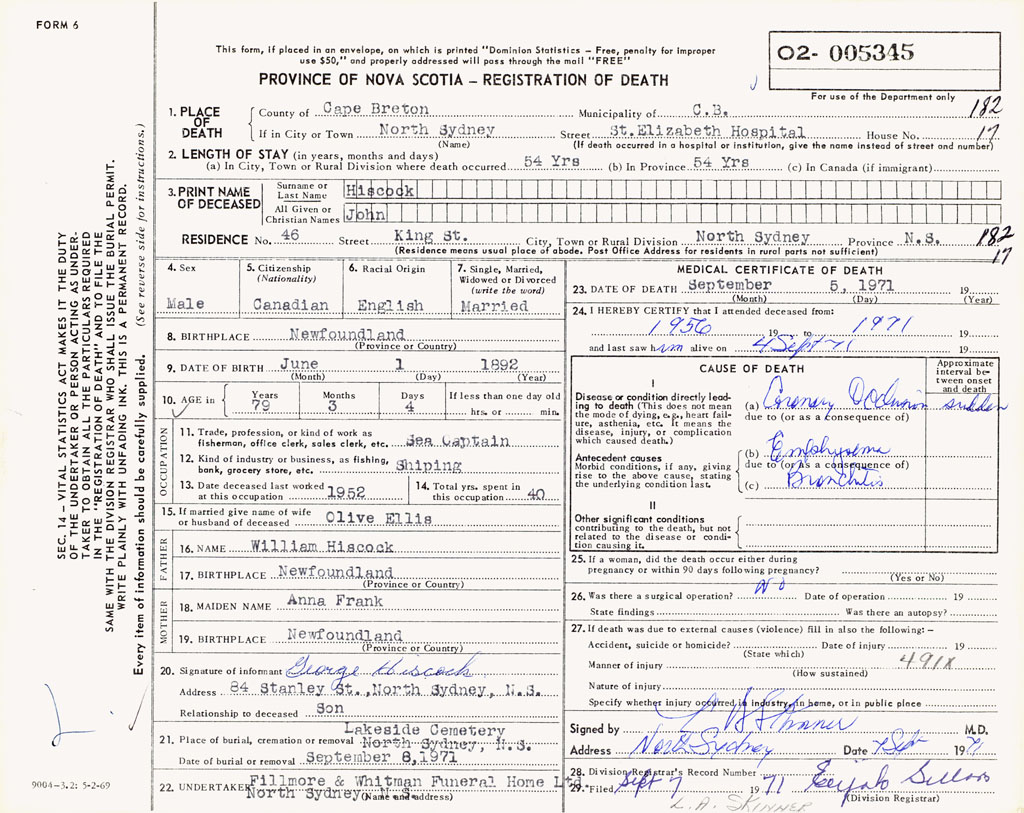 FORM 6
This form, if placed in an envelope, on which is printed "Dominion Statistics – Free, penalty for improper
use $50," and properly addressed will pass through the mail "FREE"
PROVINCE OF NOVA SCOTIA – REGISTRATION OF DEATH
02- 005345
For use of the Department only
SEC. 14 – VITAL STATISTICS ACT MAKES IT THE DUTY
OF THE UNDERTAKER OR PERSON ACTING AS UNDER-
TAKER TO OBTAIN ALL THE PARTICULARS REQUIRED
IN THE "REGISTRATION OF DEATH" AND TO FILE THE
SAME WITH THE DIVISION REGISTRAR WHO SHALL ISSUE THE BURIAL PERMIT.
WRITE PLAINLY WITH UNFADING INK. THIS IS A PERMANENT RECORD.
Every item of information should be carefully supplied. (See reverse side for instructions.)
1. PLACE OF DEATH County of Cape Breton Municipality of C.B. 182
If in City or Town North Sydney Street St.Elizabeth Hospital House No. 17
(Name) (If death occurred in a hospital or institution, give the name instead of street and number)
2. LENGTH OF STAY (in years, months and days)
(a) In City, Town or Rural Division where death occurred 54 Yrs (b) In Province 54 Yrs (c) In Canada (if immigrant)
3. PRINT NAME OF DECEASED Surname or Last Name Hiscock
All Given or Christian Names John
RESIDENCE No. 46 Street King St. City, Town or Rural Division North Sydney Province N.S. 182
(Residence means usual place of abode. Post Office Address for residents in rural parts not sufficient) 17
4. Sex Male
5. Citizenship (Nationality) Canadian
6. Racial Origin English
7. Single, Married, Widowed or Divorced (write the word) Married
8. BIRTHPLACE Newfoundland
(Province or Country)
9. DATE OF BIRTH June 1 1892
(Month) (Day) (Year)
10. AGE in Years 79 Months 3 Days 4 If less than one day old hrs. or min.
OCCUPATION
11. Trade, profession, or kind of work as
fisherman, office clerk, sales clerk, etc. Sea Captain
12. Kind of industry or business, as fishing,
bank, grocery store, etc. Shiping
13. Date deceased last worked at this occupation 1952
14. Total yrs. spent in this occupation 40
15. If married give name of wife
or husband of deceased Olive Ellis
FATHER
16. NAME William Hiscock
17. BIRTHPLACE Newfoundland
(Province or Country)
MOTHER
18. MAIDEN NAME Anna Frank
19. BIRTHPLACE Newfoundland
(Province or Country)
20. Signature of informant George Hiscock
Address 84 Stanley St.,North Sydney, N.S.
Relationship to deceased Son
Lakeside Cemetery
21. Place of burial, cremation or removal North Sydney, N.S.
Date of burial or removal September 8,1971
22. UNDERTAKER Fillmore & Whitman Funeral Home Ltd
North Sydney N.S.
(Name and address)
9004-3.2: 5-2-69
MEDICAL CERTIFICATE OF DEATH
23. DATE OF DEATH September 5, 1971 19
(Month) (Day) (Year)
24. I HEREBY CERTIFY that I attended deceased from:
1956 19 to 1971 19
and last saw him alive on 4 Sept 71 19
CAUSE OF DEATH
Approximate interval between onset and death
I
Disease or condition directly leading to death (This does not mean the mode of dying, e.g., heart failure, asthenia, etc. It means the disease, injury, or complication which caused death.)
(a) Coronary Occlusion sudden
due to (or as a consequence of)
Antecedent causes
Morbid conditions, if any, giving rise to the above cause, stating the underlying condition last.
(b) Emphysema
due to (or as a consequence of)
(c) Bronchitis
II
Other significant conditions
contributing to the death, but not related to the disease or condition causing it.
25. If a woman, did the death occur either during
pregnancy or within 90 days following pregnancy?
(Yes or No)
26. Was there a surgical operation? No Date of operation 19
State findings Was there an autopsy?
27. If death was due to external causes (violence) fill in also the following: –
Accident, suicide or homicide? Date of injury 19
(State which) 491X
Manner of injury
(How sustained)
Nature of injury
Specify whether injury occurred in industry, in home, or in public place
Signed by Skinner M.D.
Address North Sydney Date 7 Sep 1971
28. Division Registrar's Record Number
29. Filed Sept 7 1971
(Division Registrar)
L.A. SKINNER